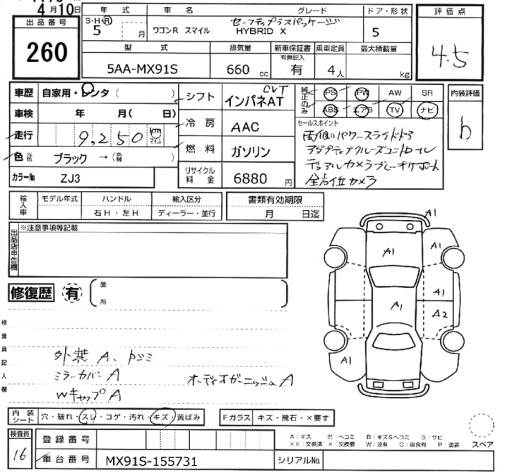 4月10日
出品番号
260
年式
S・H・R
5
月
車名
ワゴンR スマイル
グレード
セーフティプラスパッケージ
HYBRID X
ドア・形状
5
評価点
4.5
型式
5AA-MX91S
排気量
660 cc
新車保証書
有無記入
有
乗車定員
4人
最大積載量
kg
車歴
自家用・レンタ(
車検
年 月( 日)
走行
9,250 km
色
ブラック → (
カラーNo
ZJ3
シフト
CVT
インパネAT
冷房
AAC
燃料
ガソリン
リサイクル料金
6880円
純正のみ
PS PW AW SR
ABS エアB TV ナビ
セールスポイント
両側パワースライドドア
アダプティブクルーズコントロール
デュアルカメラブレーキサポート
全方位カメラ
内装評価
b
輸入車
モデル年式
ハンドル
右H・左H
輸入区分
ディーラー・並行
書類有効期限
月 日迄
出品店申告欄
※注意事項等記載
修復歴
有
箇所
検査員記入欄
外装A、凹シミ
ミラーカバーA
WキャップA
オーディオガーニッシュA
A1
A1
A1
A1
A1
A1
A2
A1
スペア
内装シート
穴・破れ・スレ・コゲ・汚れ・キズ・黄ばみ
Fガラス
キズ・飛石・×要す
A:キズ U:ヘコミ B:キズ&ヘコミ S:サビ
XX:交換済 X:交換要 W:波有 C:腐食有 P:塗装
検査員
16
登録番号
車台番号
MX91S-155731
シリアルNo